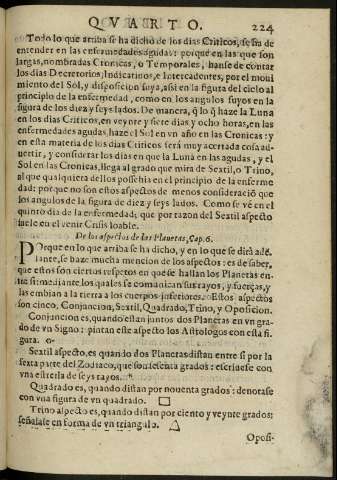 QVARTO. 224
Todo lo que arriba se ha dicho de los dias Criticos, se ha de
entender en las enfermedades agudas: porque en las que son
largas, nombradas Cronicas, o Temporales, hanse de contar
los dias Decretorios, Indicatiuos, e Intercadentes, por el moui
miento del Sol, y disposicion suya, assi en la figura del cielo al
principio de la enfermedad, como en los angulos suyos en la
figura de los diez y seys lados. De manera, q̃ lo q̃ haze la Luna
en los dias Criticos, en veynte y siete dias y ocho horas, en las
enfermedades agudas, haze el Sol en vn año en las Cronicas: y
en esta materia de los dias Criticos serà muy acertada cosa ad-
uertir, y considerar los dias en que la Luna en las agudas, y el
Sol en las Cronicas, llega al grado que mira de Sextil, o Trino,
al que qualquiera dellos possehia en el principio de la enferme
dad: porque no son estos aspectos de menos consideració que
los angulos de la figura de diez y seys lados. Como se vé en el
quinto dia de la enfermedad, que por razon del Sextil aspecto
suele en el venir Crisis loable.
De los aspectos de los Planetas, Cap. 6.
Porque en lo que arriba se ha dicho, y en lo que se dirà ade-
lante, se haze mucha mencion de los aspectos: es de saber,
que estos son ciertos respetos en que se hallan los Planetas en-
tre si: mediante los quales se comunican sus rayos, y fuerças, y
las embian a la tierra a los cuerpos inferiores. Estos aspectos
son cinco, Conjuncion, Sextil, Quadrado, Trino, y Oposicion.
Conjuncion es, quando estan juntos dos Planetas en vn gra-
do de vn Signo: pintan este aspecto los Astrologos con esta fi
gura.
Sextil aspecto, es quando dos Planetas distan entre si por la
sexta parte del Zodiaco, que son sesenta grados: escriuese con
vna estrella de seys rayos. *
Quadrado es, quando distan por nouenta grados: denotase
con vna figura de vn quadrado. □
Trino aspecto es, quando distan por ciento y veynte grados:
señalase en forma de vn triangulo. △
Oposi-